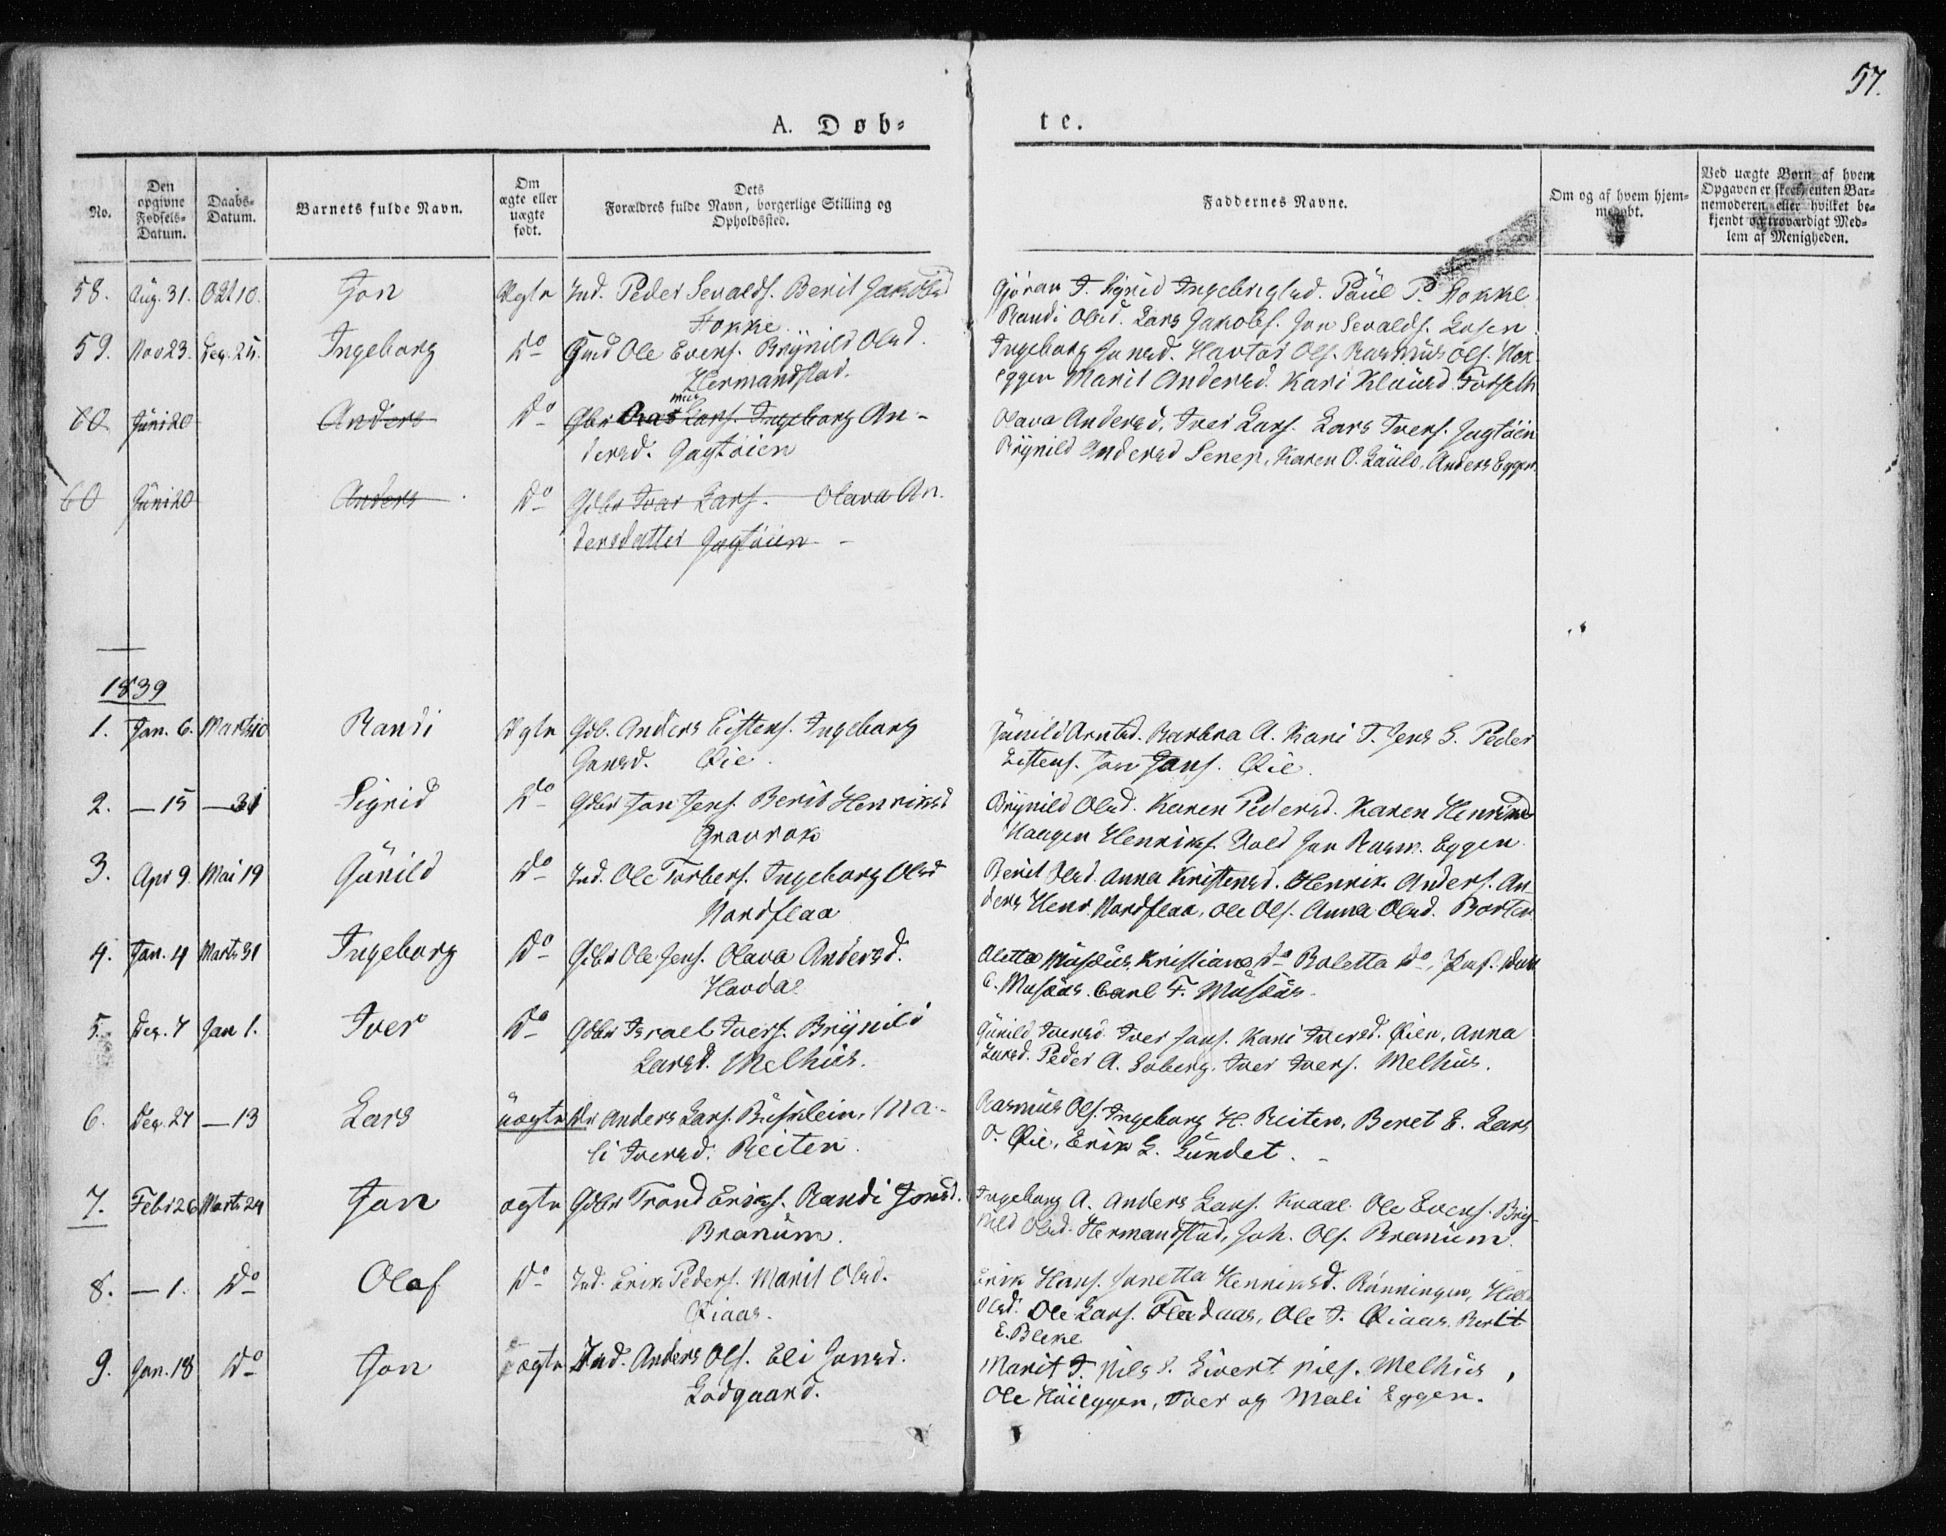 57.
A. Døb-
te.
No.
Den opgivne Fødsels-Datum.
Daabs-Datum.
Barnets fulde Navn.
Om ægte eller uægte født.
Dets Forældres fulde Navn, borgerlige Stilling og Opholdssted.
Faddernes Navne.
Om og af hvem hjemmedøbt.
Ved uægte Børn af hvem Opgaven er skeet, enten Barnemoderen eller hvilket bekjendt og troværdigt Medlem af Menigheden.
58. Aug. 31. Okt 10. Jon Ægte Ind. Peder Sevalds. Berit Jakobsd
Fokke
Ingebrigtsd. Paül P. Fokke
Randi Olsd. Lars Jakobs. Jon Sevalds. Losen
59. Nov 23. Dec. 25. Ingeborg Do Ole Evens. Brÿnild Olsd.
Hermandstad.
Ingeborg Jonsd. Havtor Ols. Rasmüs Ols. Høi-
eggen Marit Andersd. Kari Klausd.
60 Jüni 20 Anders Do Gbr Rasmus Lars. Ingeborg An-
dersd. Jagtøien
Olava Andersd, Iver Lars. Lars Ivers. Jagtøien
Brÿnild Andersd Karen O. Anders Eggen
60 Jüni 20 Anders Do Gdbr Ivar Lars. Olava An-
dersdatter Jagtøien
1839
1. Jan. 6. Marts 10 Randi Ægte Gdb. Anders Eistens. Ingeborg
Jonsd. Øie.
Günild Arntsd. Barbra A. Kari T. Jens S. Peder
Eistens. Jon Jons. Øie.
2. — 15 — 31 Sigrid Do Gdbr Jon Jens. Berit Henriksd
Gravrok
Brÿnild Olsd. Karen Pedersd. Karen Henriksd
Haagen Henriks. Jon Rasm. Eggen
3. Apr 9. Mai 19 Günild Do Ind. Ole Torbers. Ingeborg Olsd
Nordflaa
Berit Olsd. Anna Kristensd. Henrik Anders. An-
ders Henr. Nordflaa, Ole Ols. Anna Olsd. Borten
4. Jan. 4 Marts 31 Ingeborg Do Gdbr Ole Jens. Olava Andersd.
Havdal
Aletta Müsæüs, Kristiane Do Boletta Do,
C. Musæus. Carl F. Müsæüs.
5. Dec. 7 Jan 1. Iver Do Gdbr Israel Ivers. Brÿnild
Larsd. Melhüs.
Günild Iversd. Iver Jons. Kari Iversd. Øien, Anna
Larsd. Peder A. Søberg, Iver Ivers. Melhüs.
6. Dec. 27 — 13 Lars üægte Anders Lars. Ma-
li Iversd. Reiten.
Rasmüs Ols. Ingeborg H. Reiten, Beret E. Lars
O. Øie, Erik L. Sündet.
7. Febr 26 Marts 24 Jon ægte Gdbr Trond Eriks. Randi Jonsd.
Branüm.
Ingeborg A. Anders Lars. Kvaal. Ole Evens. Brÿ-
nild Olsd. Hermandstad, Joh. Ols. Branüm.
8. — 1. Do Olaf Do Ind. Erik Peders. Marit Olsd.
Øiaas.
Erik Hans. Janetta Henriksd. Rønningen,
Olsd. Ole Lars. Flaadaas, Ole T. Øiaas. Berit
E. Blekе
9. Jan. 18 Do Jon ægte Ind. Anders Ols. Eli Jonsd.
Lodgaard.
Marit T. Nils S. Sivert Nils. Melhüs,
Ole Høieggen, Iver og Mali Eggen.